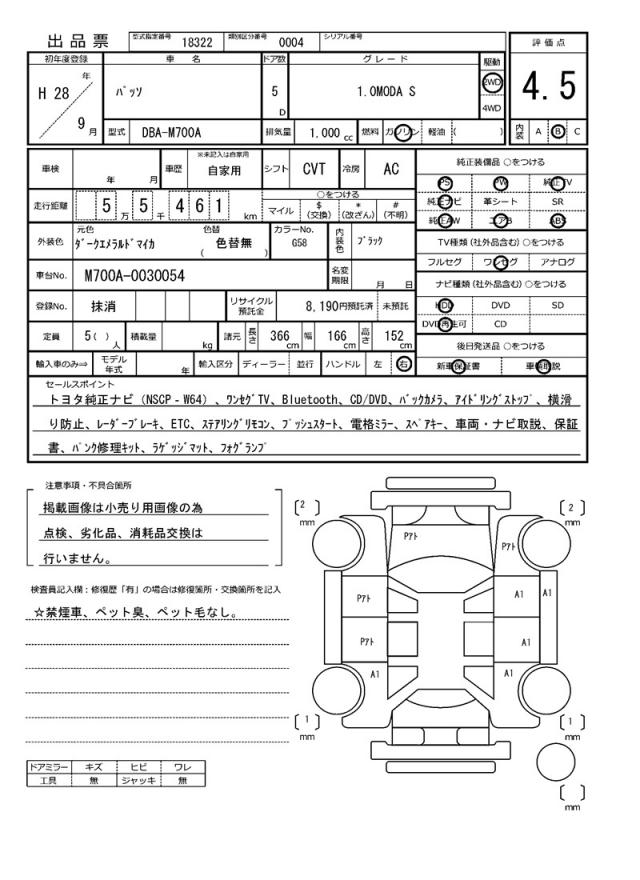 出品票 型式指定番号 18322 類別区分番号 0004 シリアル番号
評価点
4.5
初年度登録 車名 ドア数 グレード 駆動
H 28 年 9 月
パッソ 5 D 1.0MODA S 2WD 4WD
型式 DBA-M700A 排気量 1.000 cc 燃料 ガソリン 軽油 ( ) 内装 A B C
車検 年 月 車歴 ※未記入は自家用 自家用 シフト CVT 冷房 AC
走行距離 5 万 5 千 4 6 1 km
○をつける
マイル $(交換) *(改ざん) #(不明)
外装色 元色 ダークエメラルドマイカ 色替 ( 色替無 ) カラーNo. G58 内装色 ブラック
車台No. M700A-0030054 名変期限 月 日
登録No. 抹消 リサイクル預託金 8,190円預託済 未預託
定員 5( )人 積載量 kg 諸元 長さ 366 cm 幅 166 cm 高さ 152 cm
輸入車のみ⇒ モデル年式 年 輸入区分 ディーラー 並行 ハンドル 左 右
純正装備品 ○をつける
PS PW 純正TV
純正ナビ 革シート SR
純正AW エアB ABS
TV種類(社外品含む)○をつける
フルセグ ワンセグ アナログ
ナビ種類(社外品含む)○をつける
HDD DVD SD
DVD再生可 CD
後日発送品 ○をつける
新車保証書 車輌取説
セールスポイント
トヨタ純正ナビ(NSCP-W64)、ワンセグTV、Bluetooth、CD/DVD、バックカメラ、アイドリングストップ、横滑
り防止、レーダーブレーキ、ETC、ステアリングリモコン、プッシュスタート、電格ミラー、スペアキー、車両・ナビ取説、保証
書、パンク修理キット、ラゲッジマット、フォグランプ
注意事項・不具合箇所
掲載画像は小売り用画像の為
点検、劣化品、消耗品交換は
行いません。
検査員記入欄:修復歴「有」の場合は修復箇所・交換箇所を記入
☆禁煙車、ペット臭、ペット毛なし。
ドアミラー キズ ヒビ ワレ
工具 無 ジャッキ 無
〔2〕mm 〔2〕mm
Pアト
Pアト
Pアト A1 A1
Pアト A1
A1 A1
〔1〕mm 〔1〕mm
〔 〕mm